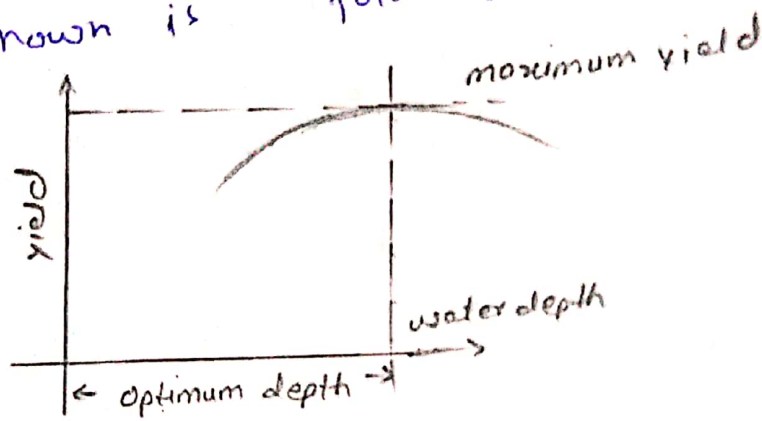 nown is
maximum yield
yield
water depth
← optimum depth →